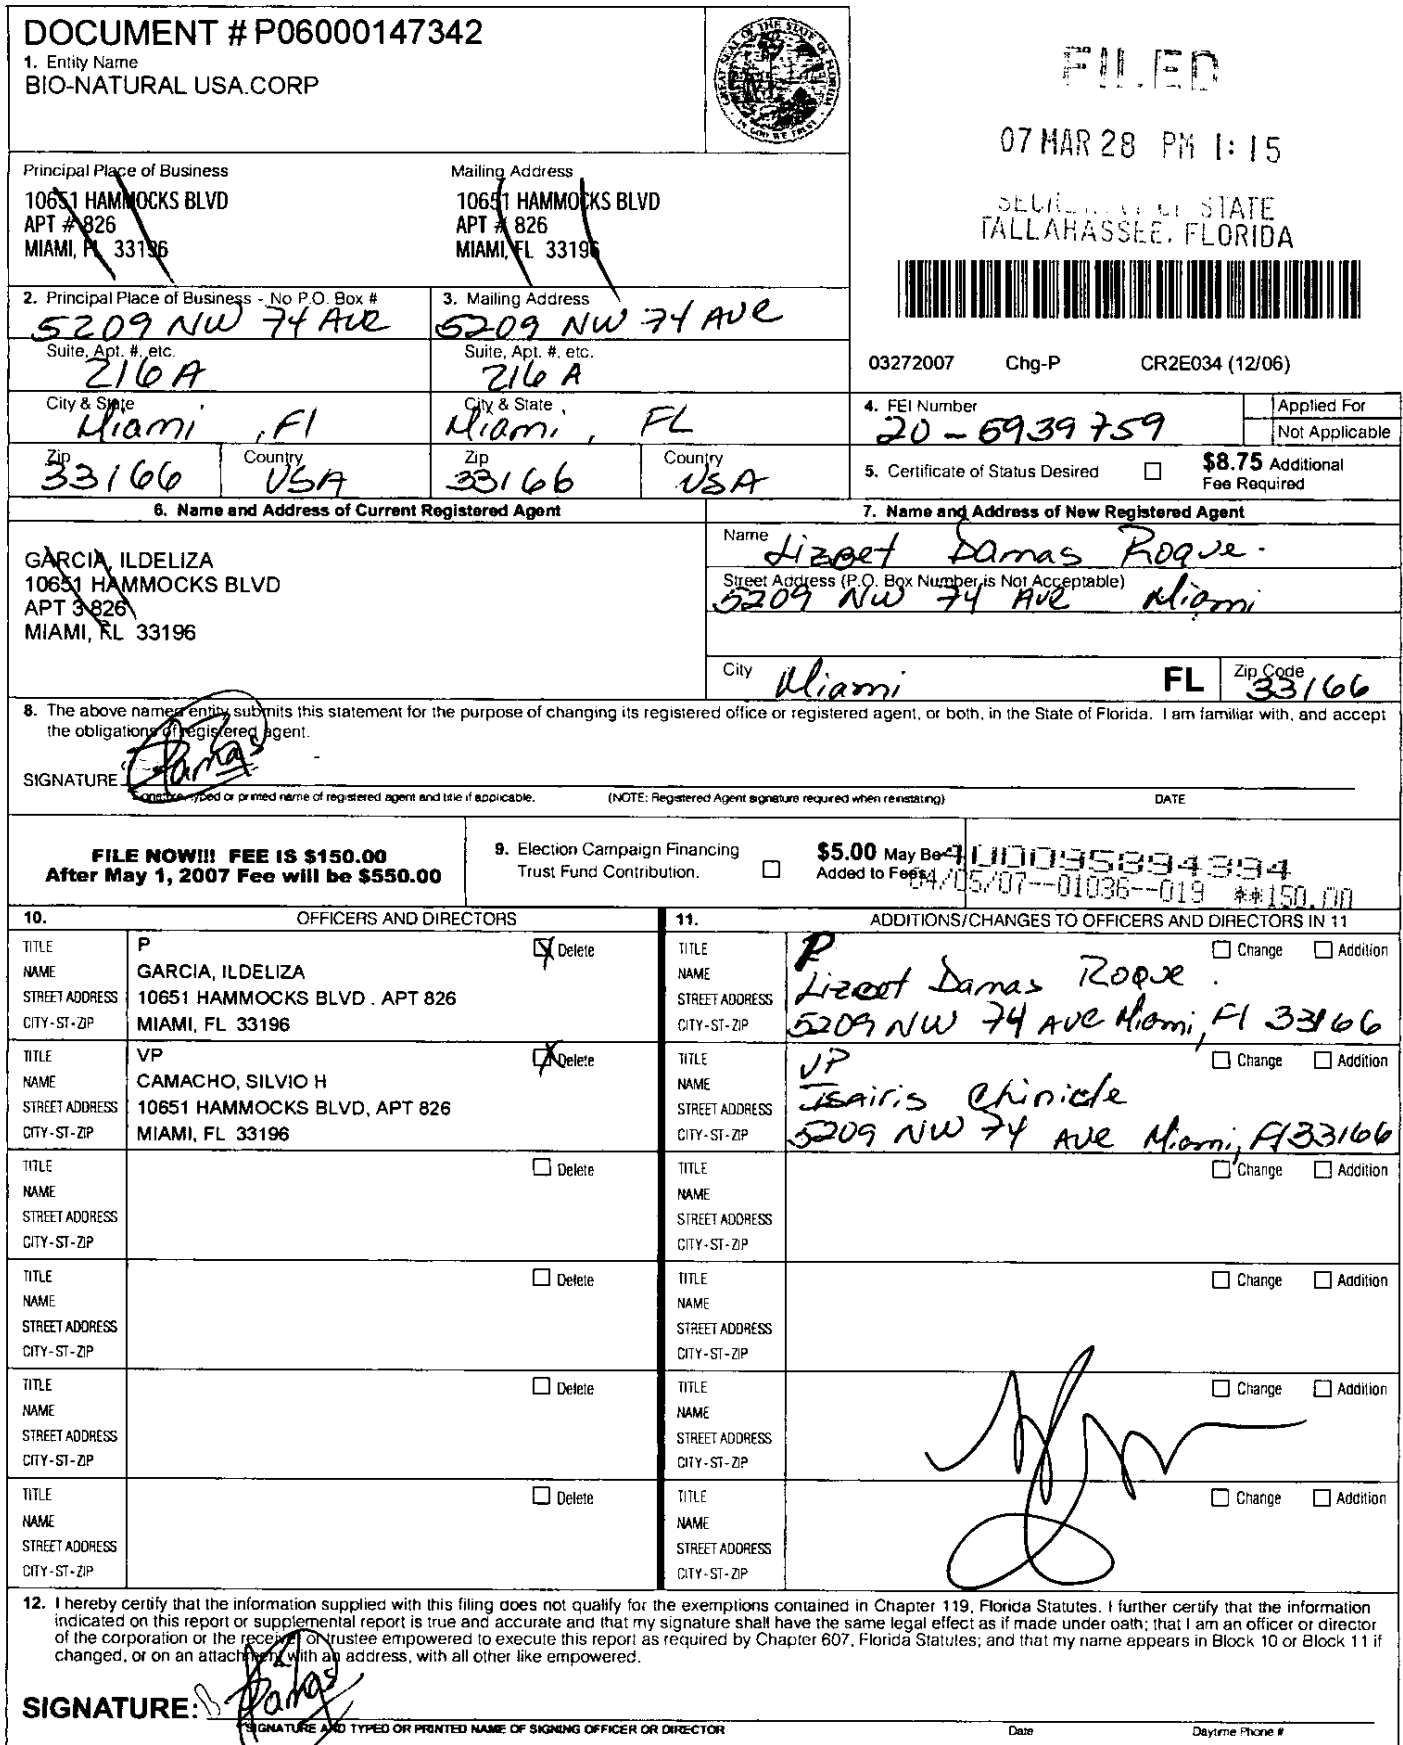 DOCUMENT # P06000147342
1. Entity Name
BIO-NATURAL USA.CORP
GREAT SEAL OF THE STATE OF FLORIDA
IN GOD WE TRUST
FILED
07 MAR 28 PM 1:15
OF STATE
TALLAHASSEE, FLORIDA
Principal Place of Business
10651 HAMMOCKS BLVD
APT # 826
MIAMI, FL 33196
Mailing Address
10651 HAMMOCKS BLVD
APT # 826
MIAMI, FL 33196
2. Principal Place of Business - No P.O. Box #
5209 NW 74 AVE
Suite, Apt. #, etc.
216 A
City & State
Miami, Fl
Zip
33166
Country
USA
3. Mailing Address
5209 NW 74 AVE
Suite, Apt. #, etc.
216 A
City & State
Miami, FL
Zip
33166
Country
USA
03272007 Chg-P CR2E034 (12/06)
4. FEI Number
20-5939759
Applied For
Not Applicable
5. Certificate of Status Desired
$8.75 Additional
Fee Required
6. Name and Address of Current Registered Agent
GARCIA, ILDELIZA
10651 HAMMOCKS BLVD
APT 3 826
MIAMI, FL 33196
7. Name and Address of New Registered Agent
Name
Lizbet Damas Roque.
Street Address (P.O. Box Number is Not Acceptable)
5209 NW 74 AVE Miami
City
Miami
FL
Zip Code
33166
8. The above named entity submits this statement for the purpose of changing its registered office or registered agent, or both, in the State of Florida. I am familiar with, and accept
the obligations of registered agent.
SIGNATURE
Damas
Signature, typed or printed name of registered agent and title if applicable.
(NOTE: Registered Agent signature required when reinstating)
DATE
FILE NOW!!! FEE IS $150.00
After May 1, 2007 Fee will be $550.00
9. Election Campaign Financing
Trust Fund Contribution.
$5.00 May Be
Added to Fees
400095894394
04/05/07--01036--019 **150.00
10. OFFICERS AND DIRECTORS
TITLE P Delete
NAME GARCIA, ILDELIZA
STREET ADDRESS 10651 HAMMOCKS BLVD . APT 826
CITY-ST-ZIP MIAMI, FL 33196
TITLE VP Delete
NAME CAMACHO, SILVIO H
STREET ADDRESS 10651 HAMMOCKS BLVD, APT 826
CITY-ST-ZIP MIAMI, FL 33196
TITLE Delete
NAME
STREET ADDRESS
CITY-ST-ZIP
TITLE Delete
NAME
STREET ADDRESS
CITY-ST-ZIP
TITLE Delete
NAME
STREET ADDRESS
CITY-ST-ZIP
TITLE Delete
NAME
STREET ADDRESS
CITY-ST-ZIP
11. ADDITIONS/CHANGES TO OFFICERS AND DIRECTORS IN 11
TITLE P Change Addition
NAME Lizbet Damas Roque.
STREET ADDRESS
CITY-ST-ZIP 5209 NW 74 AVE Miami, Fl 33166
TITLE VP Change Addition
NAME Isairis
STREET ADDRESS
CITY-ST-ZIP 5209 NW 74 AVE Miami, Fl 33166
TITLE Change Addition
NAME
STREET ADDRESS
CITY-ST-ZIP
TITLE Change Addition
NAME
STREET ADDRESS
CITY-ST-ZIP
TITLE Change Addition
NAME
STREET ADDRESS
CITY-ST-ZIP
TITLE Change Addition
NAME
STREET ADDRESS
CITY-ST-ZIP
12. I hereby certify that the information supplied with this filing does not qualify for the exemptions contained in Chapter 119, Florida Statutes. I further certify that the information
indicated on this report or supplemental report is true and accurate and that my signature shall have the same legal effect as if made under oath; that I am an officer or director
of the corporation or the receiver or trustee empowered to execute this report as required by Chapter 607, Florida Statutes; and that my name appears in Block 10 or Block 11 if
changed, or on an attachment with an address, with all other like empowered.
SIGNATURE:
Damas
SIGNATURE AND TYPED OR PRINTED NAME OF SIGNING OFFICER OR DIRECTOR
Date
Daytime Phone #